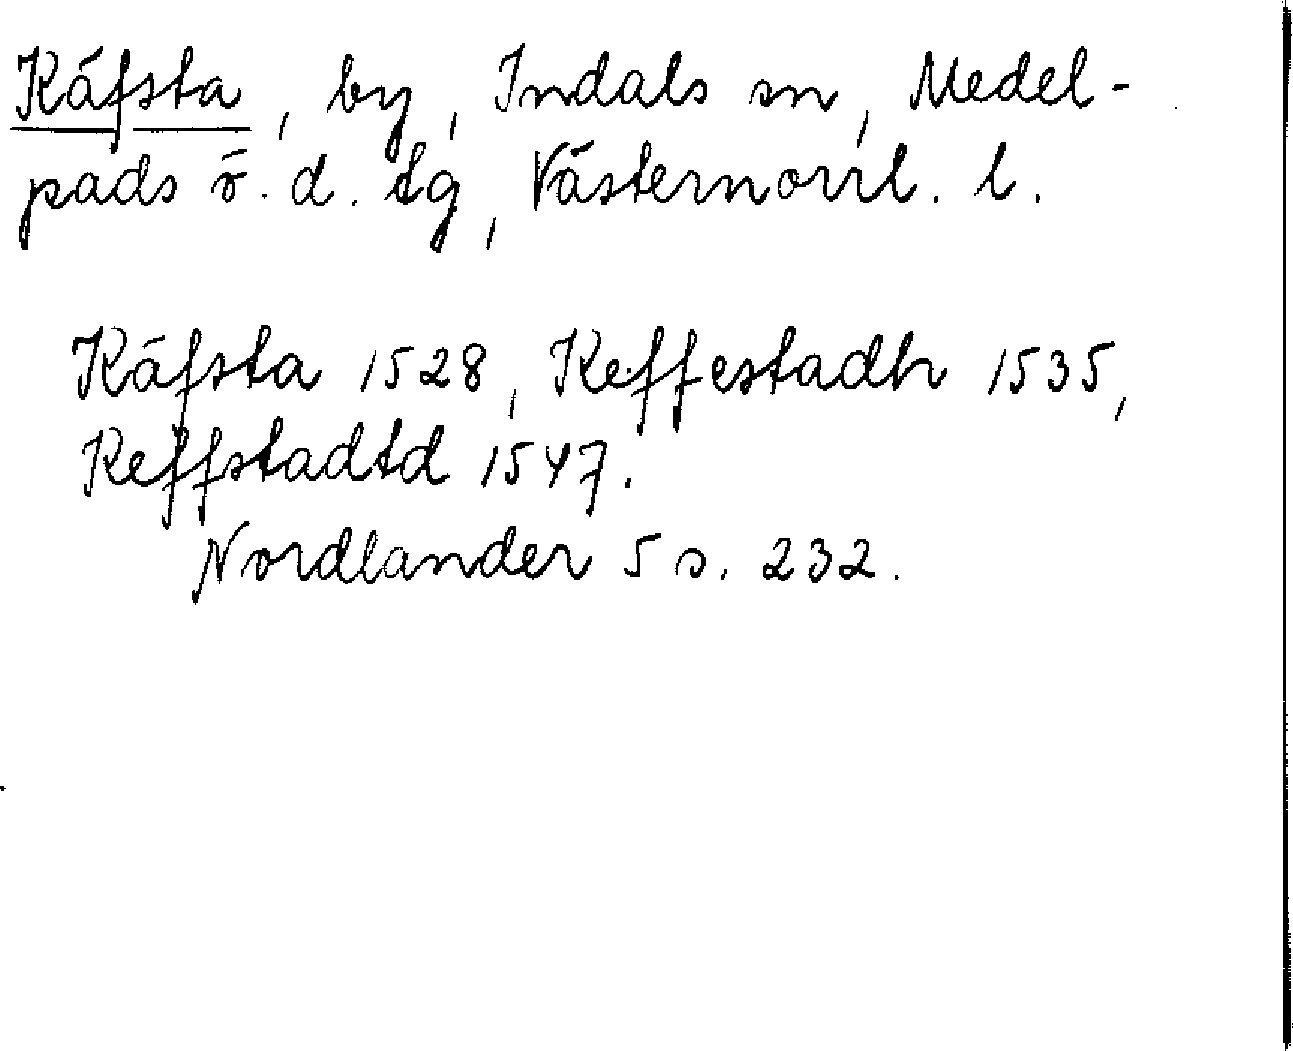 Käfsta, by, Indals sn, Medel-
pads ö. d. tg, Västernorrl. l.
Käfsta 1528, Keffestadh 1535,
Keffstadtd 1547.
Nordlander 5 s. 232.